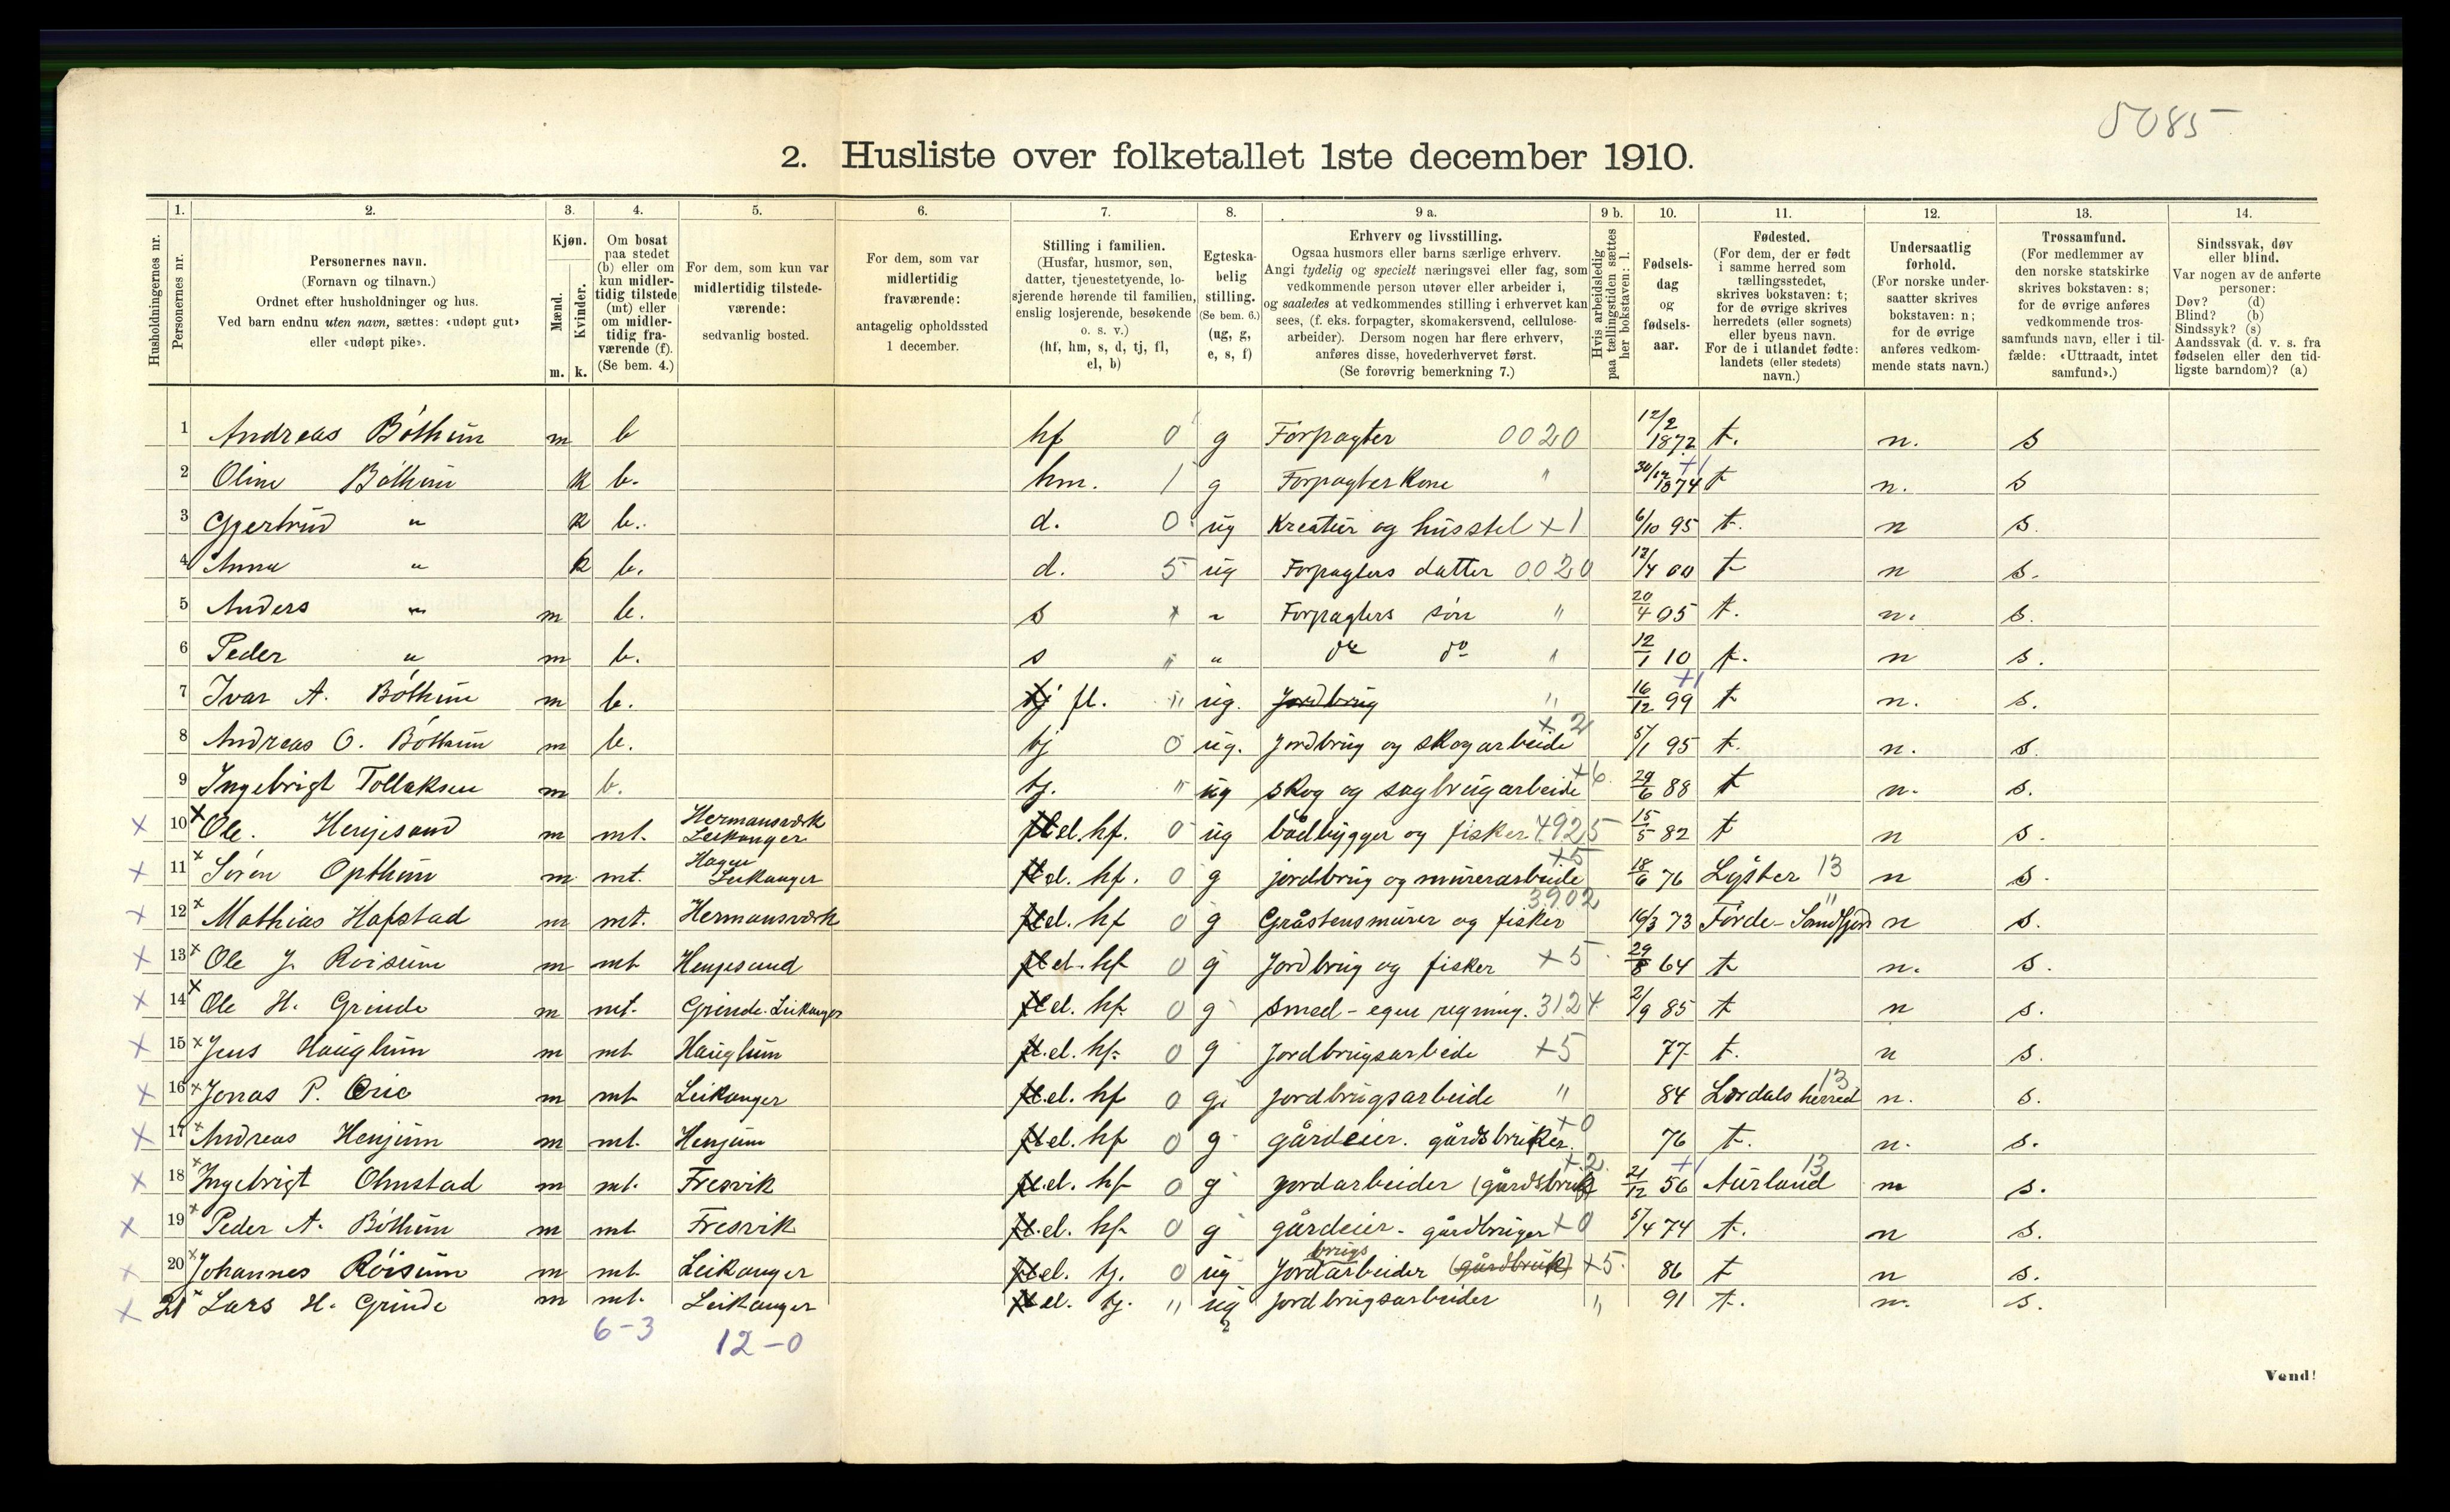 5085
2. Husliste over folketallet 1ste december 1910.
Husholdningernes nr.
1. Personernes nr.
2. Personernes navn. (Fornavn og tilnavn.) Ordnet efter husholdninger og hus. Ved barn endnu uten navn, sættes: «udøpt gut» eller «udøpt pike».
3. Kjøn. Mænd. m. Kvinder. k.
4. Om bosat paa stedet (b) eller om kun midlertidig tilstede (mt) eller om midlertidig fraværende (f). (Se bem. 4.)
5. For dem, som kun var midlertidig tilstedeværende: sedvanlig bosted.
6. For dem, som var midlertidig fraværende: antagelig opholdssted 1 december.
7. Stilling i familien. (Husfar, husmor, søn, datter, tjenestetyende, losjerende hørende til familien, enslig losjerende, besøkende o. s. v.) (hf, hm, s, d, tj, fl, el, b)
8. Egteskabelig stilling. (Se bem. 6.) (ug, g, e, s, f)
9 a. Erhverv og livsstilling. Ogsaa husmors eller barns særlige erhverv. Angi tydelig og specielt næringsvei eller fag, som vedkommende person utøver eller arbeider i, og saaledes at vedkommendes stilling i erhvervet kan sees, (f. eks. forpagter, skomakersvend, cellulosearbeider). Dersom nogen har flere erhverv, anføres disse, hovederhvervet først. (Se forøvrig bemerkning 7.)
9 b. Hvis arbeidsledig paa tællingstiden sættes her bokstaven: l.
10. Fødselsdag og fødselsaar.
11. Fødested. (For dem, der er født i samme herred som tællingsstedet, skrives bokstaven: t; for de øvrige skrives herredets (eller sognets) eller byens navn. For de i utlandet fødte: landets (eller stedets) navn.)
12. Undersaatlig forhold. (For norske undersaatter skrives bokstaven: n; for de øvrige anføres vedkommende stats navn.)
13. Trossamfund. (For medlemmer av den norske statskirke skrives bokstaven: s; for de øvrige anføres vedkommende trossamfunds navn, eller i tilfælde: «Uttraadt, intet samfund».)
14. Sindssvak, døv eller blind. Var nogen av de anførte personer: Døv? (d) Blind? (b) Sindssyk? (s) Aandssvak (d. v. s. fra fødselen eller den tidligste barndom)? (a)
1 Andreas Bóthun m b hf 0 g Forpagter 0020 12/2 1872 t. n. s
2 Oline Bóthun k b. hm. 1 g Forpagterkone " 30/12 1874 +1 t n. s
3 Gjertrud " k b. d. 0 ug Kreatur og husstel +1 6/10 95 t. n s.
4 Anna " k b. d. 5 ug Forpagters datter 0020 /4 00 t n s.
5 Anders " m b. s " Forpagters søn " 20/4 05 t. n. s.
6 Peder " m b. s " " do do " 12/1 10 t. n s.
7 Ivar A. Bóthun m b. tj fl. " ug. Jordbrug " 16/12 99 +1 t n. s.
8 Andreas O. Bóthun m b. tj 0 ug. Jordbrug og skogarbeide +2 5/1 95 t. n. s.
9 Ingebrigt Tollaksen m b. tj. " ug skog og sagbrugarbeide +6 29/6 88 t n. s.
X 10 x Ole. Henjesand m mt. Hermansværk Leikanger fl el. hf. 0 ug bådbygger og fisker 4925 15/5 82 t n s.
X 11 x Søren Opthun m mt. Hagen Leikanger fl el. hf. 0 g jordbrug og murerarbeide +5 18/6 76 Lyster 13 n s.
X 12 x Mathias Hafstad m mt. Hermansværk fl el. hf 0 g Gråstensmurer og fisker 3902 16/3 73 Førde-Søndfjord " n s.
X 13 x Ole J. Røisum m mt Henjesand fl el. hf 0 g Jordbrug og fisker +5 29/8 64 t n. s.
X 14 x Ole H. Grinde m mt. Grinde. Leikanger fl el. hf 0 g smed - egen regning. 3124 2/9 85 t n s.
X 15 x Jens Hauglum m mt Hauglum fl. el. hf. 0 g Jordbrugsarbeide +5 77 t. n s.
X 16 x Jonas P. m mt Leikanger fl. el. hf 0 g. jordbrugsarbeide " 84 Lærdals herred 13 n. s.
X 17 x Andreas Henjum m mt. Henjum fl el. hf 0 g gårdeier. gårdsbruker. +0 76 t. n. s.
X 18 x Ingebrigt Ohnstad m mt. Fresvik fl el. hf 0 g jordarbeider (gårdsbruk +2 21/12 56 +1 Aurland 13 n s.
X 19 x Peder A. Bóthun m mt Fresvik fl. el. hf 0 g gårdeier - gårdbruger +0 5/4 74 t. n s.
X 20 x Johannes Róisum m mt Leikanger fl el. tj. 0 ug Jordbrugsarbeider (gårdbruk) +5 86 t n s.
X 21 x Lars H. Grinde m mt. Leikanger fl el. tj. " ug Jordbrugsarbeider " 91 t. n. s.
6-3 12-0 2
Vend!